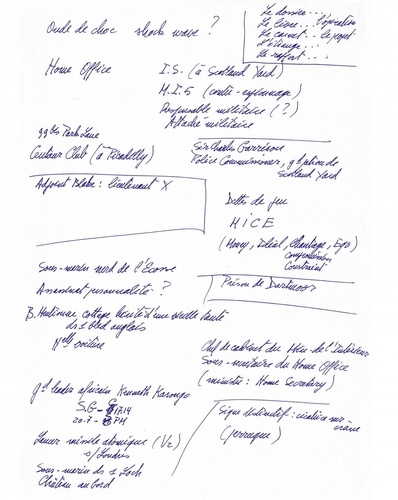 Onde de choc shock wave ?
Le dossier...
Le livre... l'opération
Le carnet... le projet
L'étrange...
Le rapport...
Home Office
I.S. (à Scotland Yard)
M.I.5 (contre-espionnage)
Responsable militaire (?)
Attaché militaire
99 bis Park Lane
Centaur Club (à Picadilly)
Sir Charles Garrison
Police Commissioner, gd patron de
Scotland Yard
Adjoint Blake : lieutenant X
Dettes de jeu
MICE
(Money, Idéal, Chantage, Ego)
compromission
Constraint
Sous-marin nord de l'Ecosse
Assassinat personnalité ?
Prison de Dartmoor
B. Mortimer, cottage hérité d'une vieille tante
ds 1 bled anglais
Nelle voiture
Chef de cabinet du Min de l'Intérieur
Sous-ministre du Home Office
(ministre : Home Secretary)
gd leader africain Kenneth Kasongo
S.G - 1714
20.7 - PH
Signe distinctif : cicatrice sur
crâne
(perruque)
Lancer missile atomique (V2)
s/Londres
Sous-marin ds 1 Loch
Château au bord